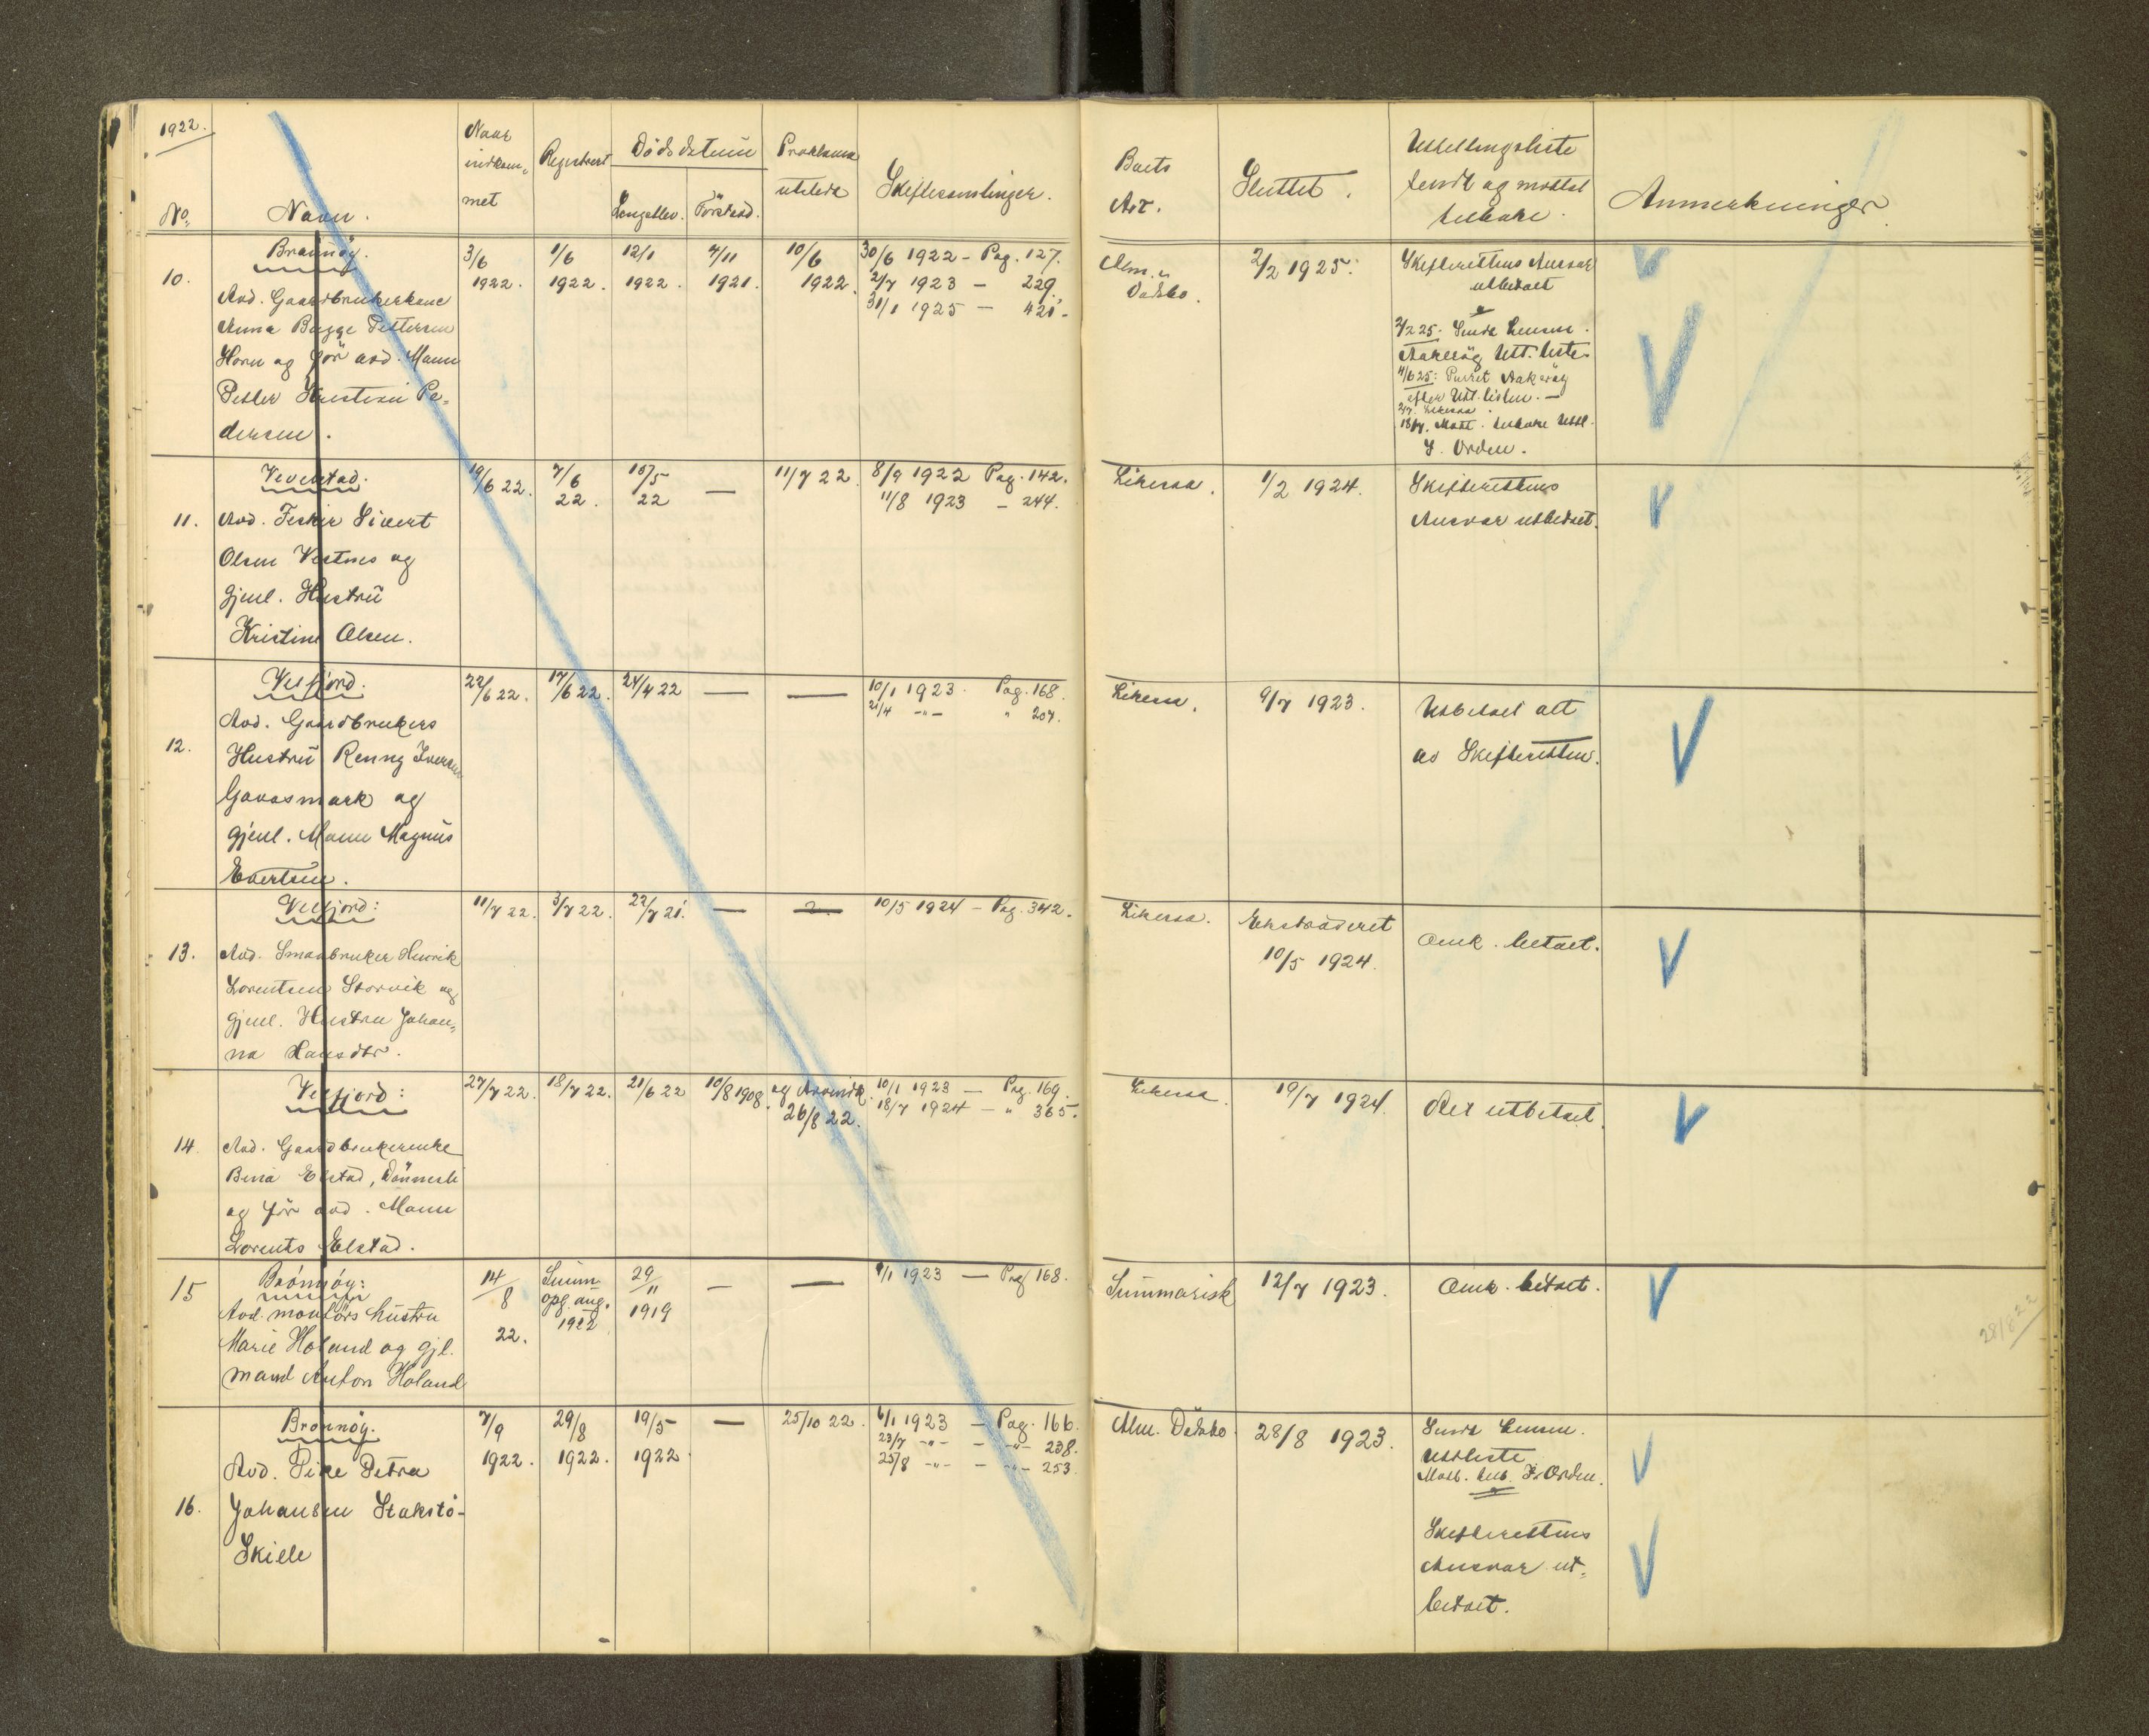 1922.
No.
Navn.
Naar
indkom-
met
Registrert
Dödsdatum
Lengstlev.
Förstavd.
Proklama
utstedt
Skiftesamlinger.
Boets
Art.
Sluttet.
Utlodningsliste
sendt og mottat
tilbake.
Anmerkninger
10.
Brønnöy.
Avd. Gaardbrukerkone
Anna Bugge Pettersen
Horn og før avd. Mann
Petter Kristian Pe-
dersen.
3/6
1922.
1/6
1922.
12/1
1922.
7/11
1921.
10/6
1922.
30/6 1922 - Pag. 127.
2/7 1923 - 229.
31/1 1925 - 421.
Alm.
Dødsbo.
2/2 1925.
Skifterettens Ansvar
utbetalt
2/2 25. Sendt Lensm.
Utl. liste
4/6 25: Purret
efter Utl. listen. -
2/7. Likesaa.
18/7. Mott. tilbake Utll.
I Orden.
11.
Vevelstad.
Avd. Fisker Sivert
Olsen Vestnes og
gjenl. Hustru
Kristine Olsen.
19/6 22.
7/6
22.
15/5
22
—
11/7 22.
8/9 1922 Pag. 142.
11/8 1923 - 244.
Likesaa.
1/2 1924.
Skifterettens
Ansvar utbetalt.
12.
Velfjord.
Avd. Gaardbrukers
Hustru Renny Iversen
mark og
gjenl. Mann Magnus
Evertsen.
22/6 22.
17/6 22.
24/4 22
—
—
10/1 1923. Pag. 168.
21/4 -"- " 207.
Likesaa.
9/7 1923.
Utbetalt alt
av Skifteretten.
13.
Velfjord:
Avd. Smaabruker Henrik
Lorentsen Storvik og
gjenl. Hustru Johan-
na Hansdtr.
11/7 22.
3/7 22.
22/7 21.
—
—
10/5 1924 - Pag. 342.
Likesaa.
Ekstraderet
10/5 1924.
Omk. betalt.
14.
Velfjord:
Avd. Gaardbrukerenke
Elstad,
og før avd. Mann
Lorents Elstad.
27/7 22.
18/7 22.
21/6 22
10/8 1908.
og
26/8 22.
10/1 1923 - Pag. 169.
18/7 1924 - " 365.
Likesaa.
19/7 1924.
Alt utbetalt.
15
Brønnøy:
Avd. montørs hustru
Marie Holand og gjl.
mand Anton Holand
14/8
22.
Summ.
opg. aug.
1922
29/11
1919
—
—
9/1 1923 — Pag 168.
Summarisk
12/7 1923.
Omk. betalt.
28/8 22
16.
Brønnöy.
Avd. Pike Petra
Johansen
Skille
7/9
1922.
29/8
1922.
19/5
1922
—
25/10 22.
6/1 1923 - Pag. 166.
23/7 -"- - -"- 238.
25/8 -"- - -"- 253.
Alm. Dødsbo.
28/8 1923.
Sendt Lensm.
Utl.liste
Mott. tilb. I Orden.
Skifterettens
Ansvar ut-
betalt.